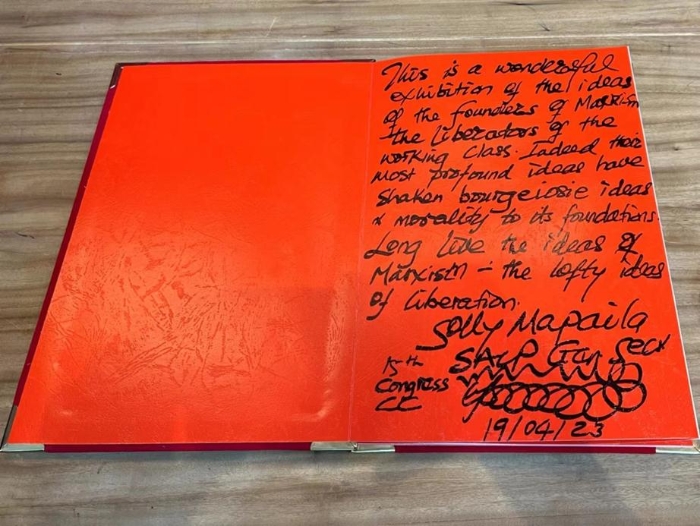 This is a wonderful
exhibition of the ideas
of the founders of Marxism
the liberators of the
working class. Indeed their
most profound ideas have
shaken bourgeiosie ideas
& morality to its foundations.
Long live the ideas of
Marxism - the lofty ideas
of liberation.
Solly Mapaila
SACP Gen Secr
15th
Congress
CC
19/04/23